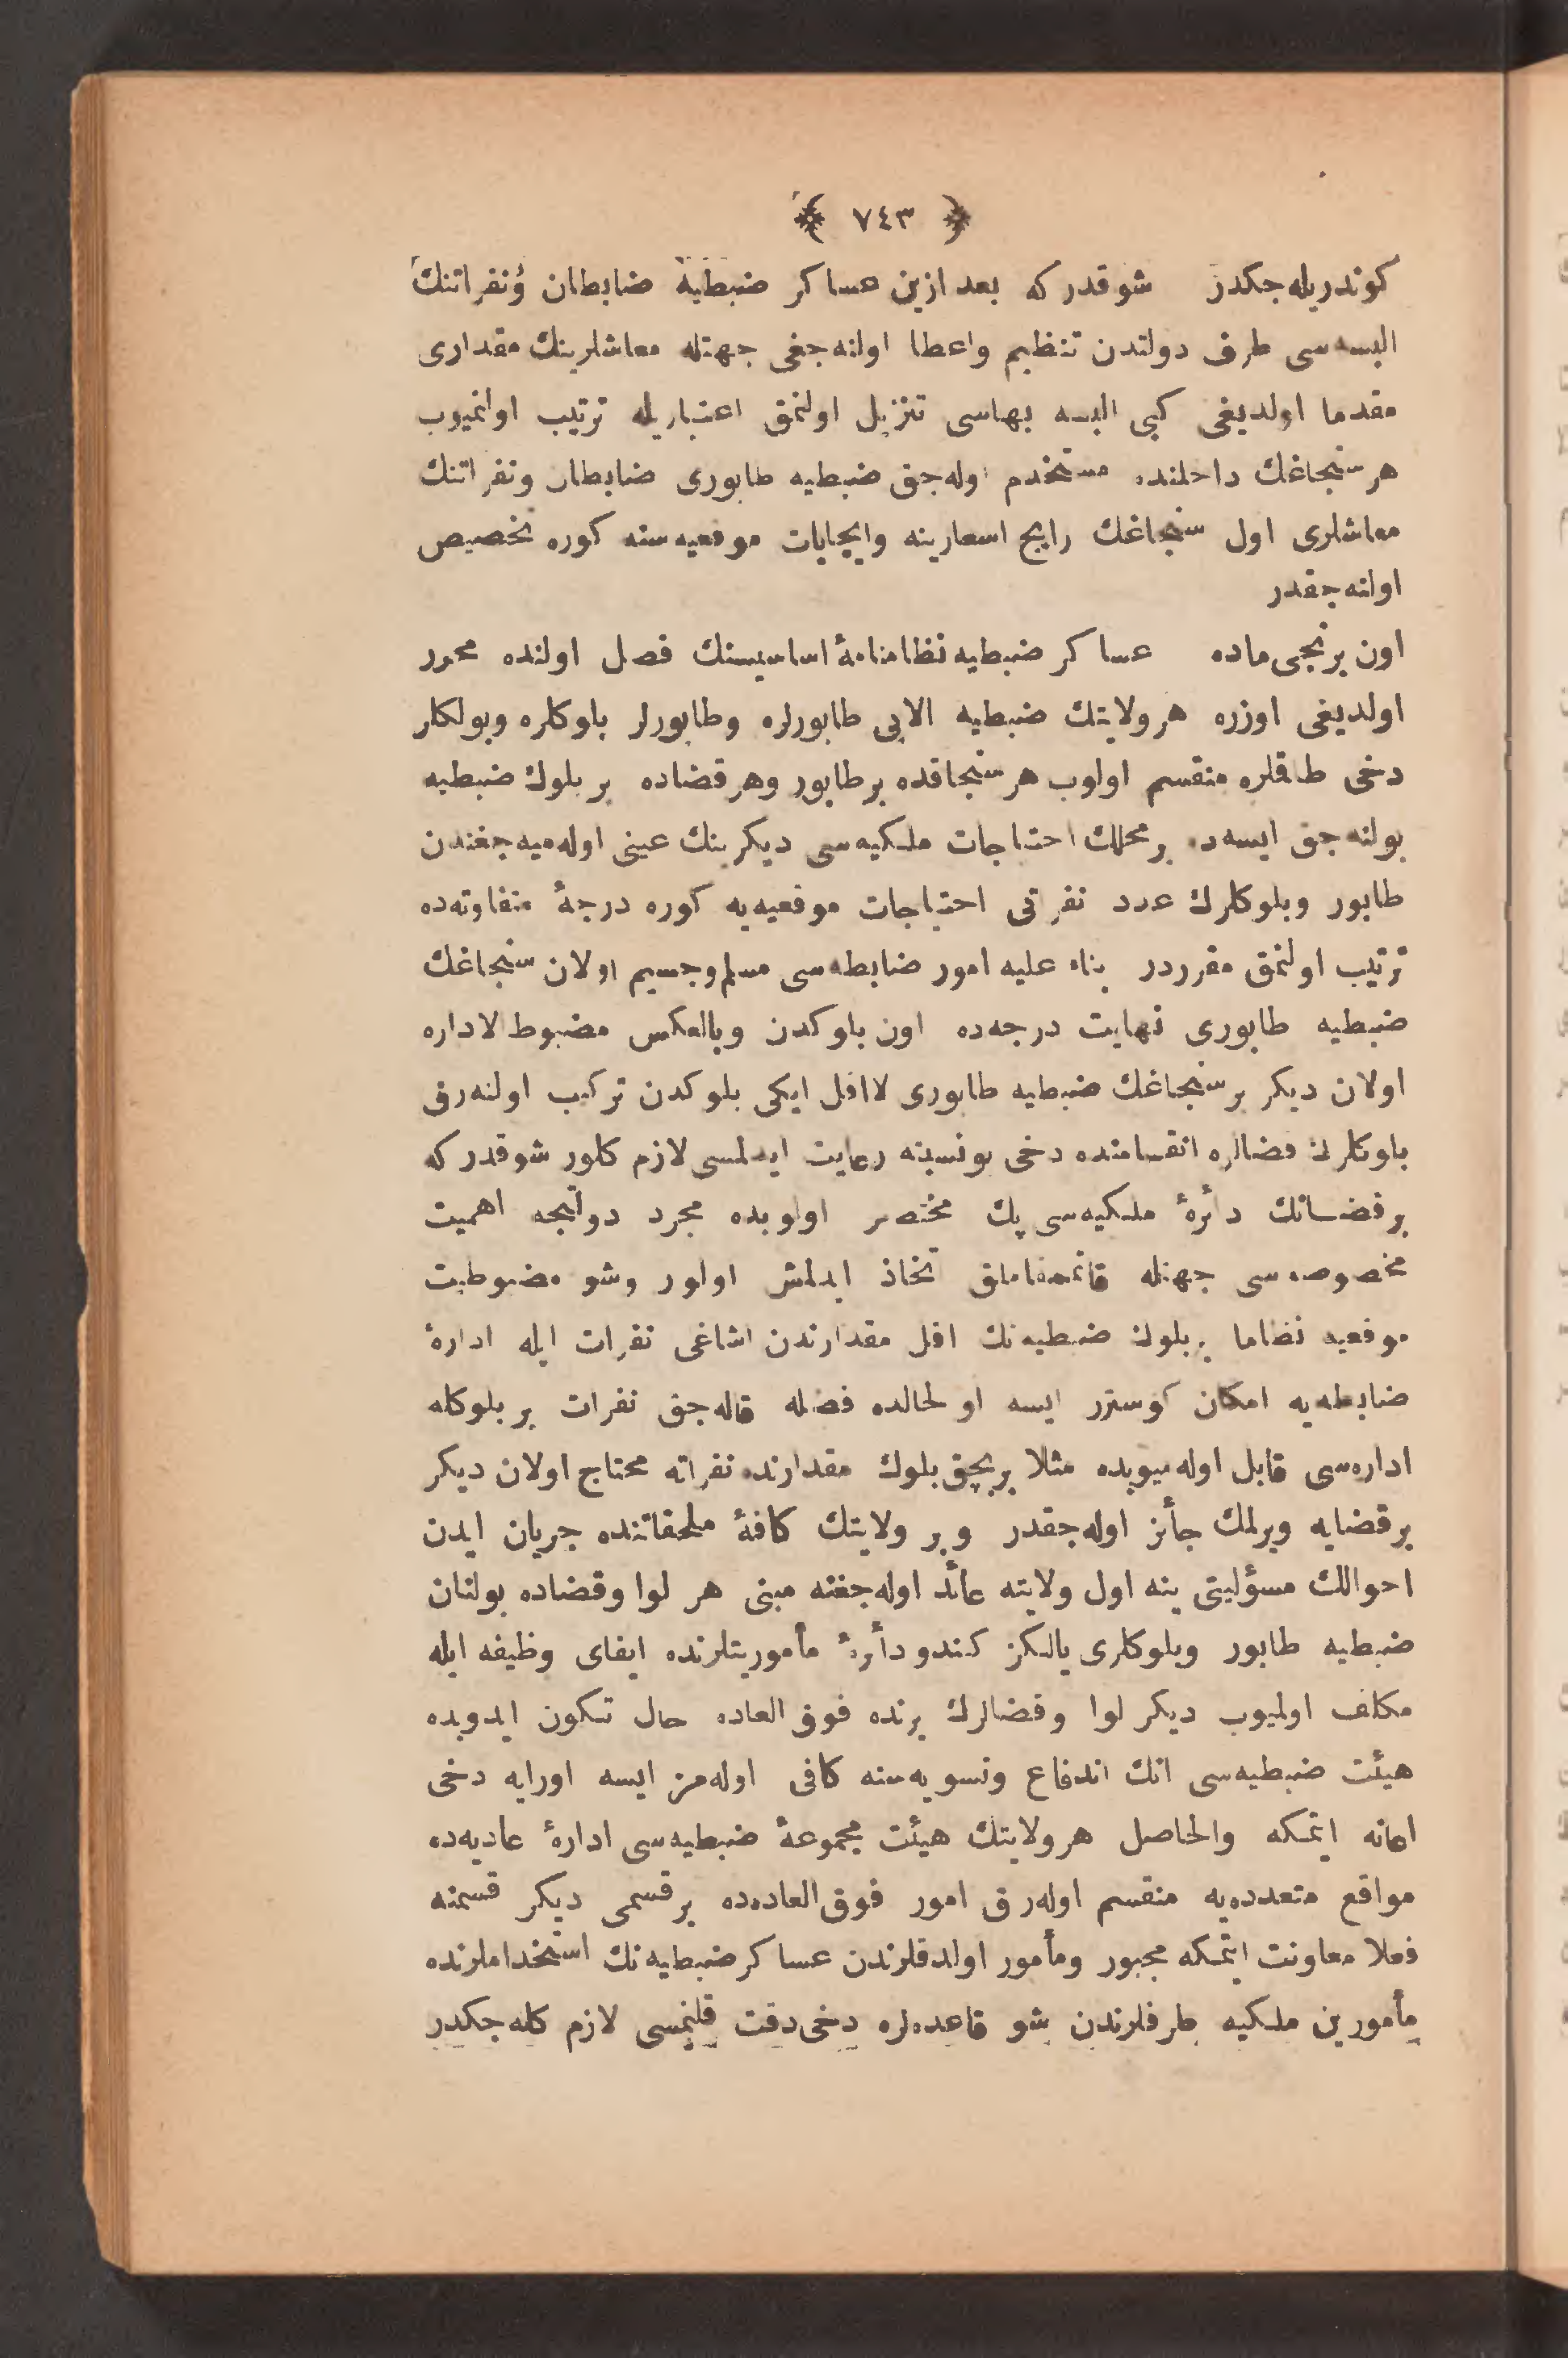 ﴿ ٧٤٣ ﴾
كوندريله‌جكدر شوقدركه بعد ازين عساكر ضبطيهٔ ضابطان ونفراتنك
البسه‌سى طرف دولتدن تنظيم واعطا اولنه‌جغى جهتله معاشلرينك مقدارى
مقدما اولديغى كبى البسه بهاسى تنزيل اولنمق اعتباريله ترتيب اولنميوب
هر سنجاغك داخلنده مستخدم اوله‌جق ضبطيه طابورى ضابطان ونفراتنك
معاشلرى اول سنجاغك رايج اسعارينه وايجابات موقعيه‌سنه كوره تخصيص
اولنه‌جقدر
اون برنجى ماده عساكر ضبطيه نظامنامهٔ اساسيسنك فصل اولنده محرر
اولديغى اوزره هر ولايتك ضبطيه الايى طابورلره وطابورلر بلوكلره وبولكلر
دخى طاقلره منقسم اولوب هر سنجاقده بر طابور وهر قضاده بر بلوك ضبطيه
بولنه‌جق ايسه‌ده بر محلك احتياجات ملكيه‌سى ديكرينك عينى اوله‌ميه‌جغندن
طابور وبلوكلرك عدد نفراتى احتياجات موقعيه‌يه كوره درجهٔ متفاوته‌ده
ترتيب اولنمق مقرردر بناء عليه امور ضابطه‌سى مسلم وجسيم اولان سنجاغك
ضبطيه طابورى نهايت درجه‌ده اون بلوكدن وبالعكس مضبوط الاداره
اولان ديكر بر سنجاغك ضبطيه طابورى لااقل ايكى بلوكدن تركيب اولنه‌رق
بلوكلرك قضالره انقسامنده دخى بونسبته رعايت ايدلمسى لازم كلور شوقدركه
بر قضانك دأرهٔ ملكيه‌سى پك مختصر اولوبده مجرد دولتجه اهميت
مخصوصه‌سى جهتله قائممقاملق اتخاذ ايدلمش اولور وشو مضبوطيت
موقعيه نظاما بر بلوك ضبطيه‌نك اقل مقدارندن اشاغى نفرات ايله ادارهٔ
ضابطه‌يه امكان كوسترر ايسه اولحالده فضله قاله‌جق نفرات بر بلوكله
اداره‌سى قابل اوله‌ميوبده مثلا بربچق بلوك مقدارنده نفراته محتاج اولان ديكر
بر قضايه ويرلمك جأئز اوله‌جقدر وبر ولايتك كافهٔ ملحقاتنده جريان ايدن
احوالك مسؤليتى ينه اول ولايته عائد اوله‌جغنه مبنى هر لوا وقضاده بولنان
ضبطيه طابور وبلوكلرى يالكز كندو دأرهٔ مأموريتلرنده ايفاى وظيفه ايله
مكلف اولميوب ديكر لوا وقضالرك برنده فوق العاده حال تكون ايدوبده
هيئت ضبطيه‌سى انك اندفاع وتسويه‌سنه كافى اوله‌مز ايسه اورايه دخى
اعانه ايتمكه والحاصل هر ولايتك هيئت مجموعهٔ ضبطيه‌سى ادارهٔ عاديه‌ده
مواقع متعدده‌يه منقسم اوله‌رق امور فوق العاده‌ده بر قسمى ديكر قسمنه
فعلا معاونت ايتمكه مجبور ومأمور اولدقلرندن عساكر ضبطيه‌نك استخداملرنده
مأمورين ملكيه طرفلرندن شو قاعده‌لره دخى دقت قلنمسى لازم كله‌جكدر